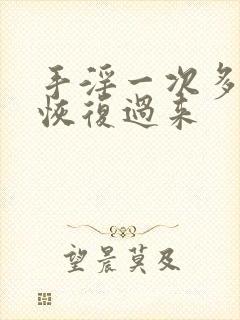 手淫一次多
恢復過来
望晨莫及